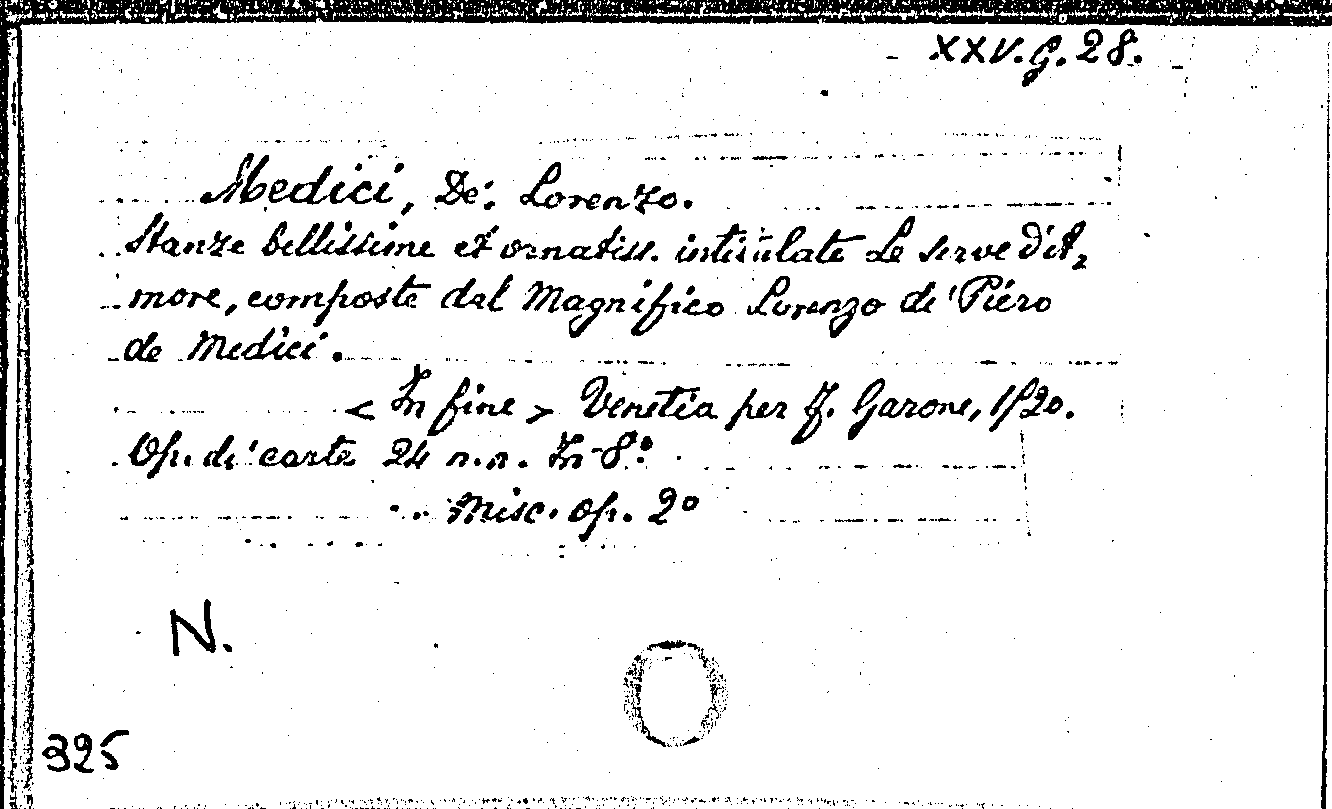 XXV.G.28.
Medici, De'. Lorenzo.
Stanze bellissime et ornatiss. intitulate Le serve d'A,
more, composte dal Magnifico Lorenzo di Piero
de Medici.
< In fine > Venetia per F. Garone, 1520.
Op. di carte 24 n.n. In-8º
Misc. Op. 2º
N.
325